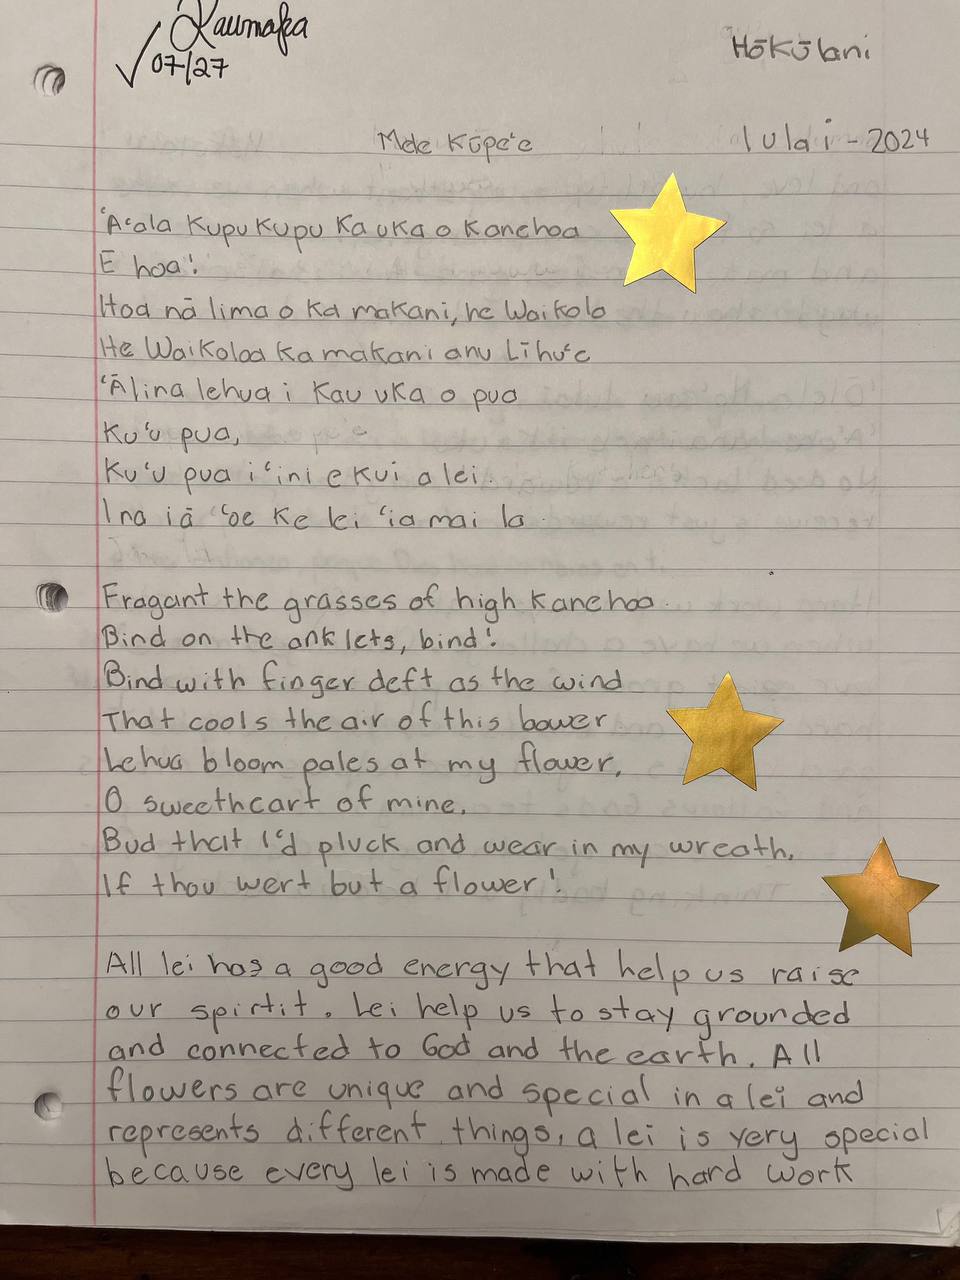 Kaumaka
07/27
Hōkūlani
Mele Kūpe'e
Iulai - 2024
'A'ala Kupu Kupu Ka uka o Kanehoa
E hoa!
Hoa nā lima o ka makani, he Waikolo
He Waikoloa ka makani anu Līhu'e
'Ālina lehua i Kau uka o pua
Ku'u pua,
Ku'u pua i'ini e kui a lei.
Ina iā 'oe Ke lei 'ia mai la
Fragant the grasses of high Kanehoa.
Bind on the anklets, bind!
Bind with finger deft as the wind
That cools the air of this bower
Lehua bloom pales at my flower,
O sweetheart of mine,
Bud that I'd pluck and wear in my wreath,
If thou wert but a flower!
All lei has a good energy that help us raise
our spirtit. Lei help us to stay grounded
and connected to God and the earth. All
flowers are unique and special in a lei and
represents different things, a lei is very special
because every lei is made with hard work